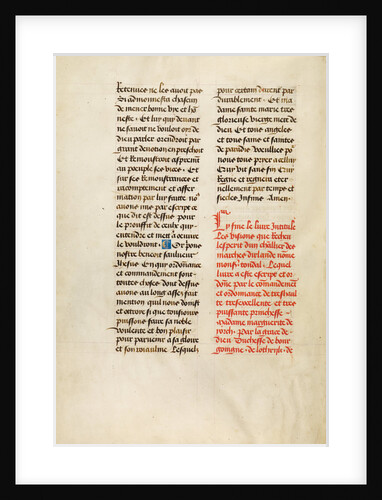 Retenues ne les avoit pas
Si admonnesta chascun
de mener bonne vie et hon
neste. Et luy qui devant
ne savoit ne vouloit ores de
dieu parler orendroit par
grant devotion en preschoit
Et Remoustroit asprement
au peuple ses vices. Et
sur ses Remoustrances et
racomptement et affer
mation par luy faitte n9
avons mis par escript ce
que dit est dessus pour le
prouffit de ceulx qui
entendre et mettre a oeuvre
le vouldront. Or prions
nostre benoit sauluieur
Jhesus en qui ordonnance
et commandement sont
toutes choses dont dessus
avons au long assez fait
mention quil nous doinst
et ottroie si que tousiours
puissons faire sa noble
voulente et bon plaisir
pour parvenir a sa gloire
et son roiaulme. Lesquelz
pour certain durent par
durablement. Et ma
dame sainte marie tres
glorieuse vierge mere de
dieu Et tous angeles
et tous sains et saintes
de paradis Veuillies po9
nous tous prier a cellui
Qui vit sans fin Qui
Regne et regnera eter
nellement par temps et
siecles Infinis Amen.
Cy fine le livre Intitule
Les visions que Recheu
lesperit dun chevallier des
marches dirlande nomme
monsr tondal. Lequel
livre a este escript et or
donne par le commandement
et ordonnance de treshaulte
tresexcellente et tres
puissante princhesse
Madame marguerite de
yorch. Par la grace de
dieu Duchesse de bour
goingne. de lotherijk. de